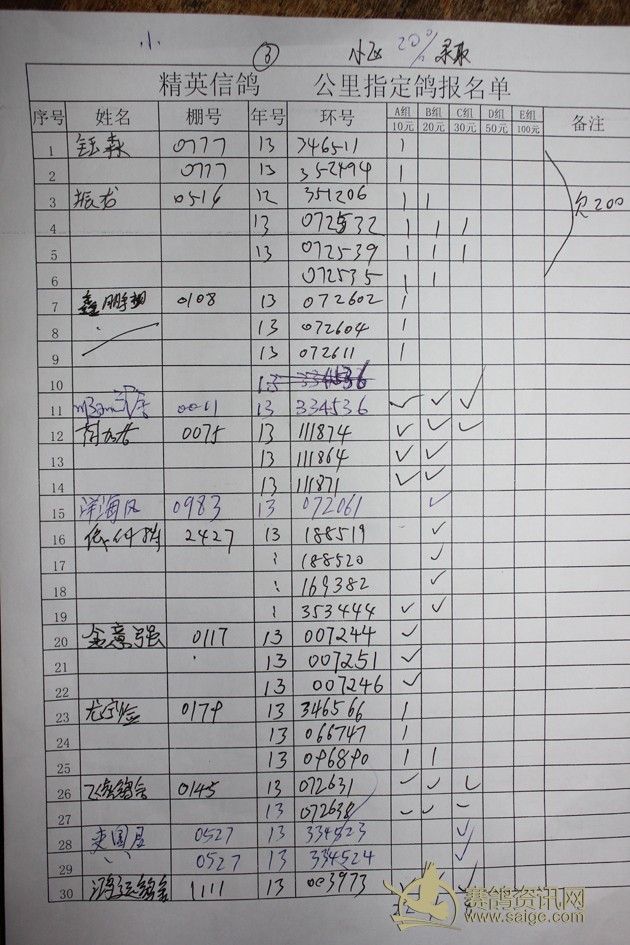 小
③ 20% 录取
精英信鸽 公里指定鸽报名单
序号 姓名 棚号 年号 环号 A组 B组 C组 D组 E组 备注
10元 20元 30元 50元 100元
1 钰森 0777 13 346511 1
2 0777 13 352494 1
3 振龙 0516 12 351206 1 1 欠200
4 13 072532 1 1 1
5 13 072539 1 1 1
6 072535 1 1
7 0108 13 072602 1
8 13 072604 1
9 13 072611 1
10 13 334536
11 0011 13 334536 ✓ ✓ ✓
12 0075 13 111874 ✓ ✓ ✓
13 13 111864 ✓ ✓
14 13 111871 ✓ ✓
15 洋海风 0983 13 072061 ✓
16 2427 13 188519 ✓
17 188520 ✓
18 169382 ✓
19 353444 ✓ ✓
20 金意强 0117 13 007244 ✓
21 13 007251 ✓
22 13 007246 ✓
23 0179 13 346566 1
24 13 066747 1
25 13 096890 1 1
26 0145 13 072631 ✓ ✓ ✓
27 13 072638 ✓ ✓ ✓
28 0527 13 334523 ✓
29 0527 13 334524 ✓
30 鸿运鸽舍 1111 13 003973 ✓
赛鸽资讯网
www.saige.com